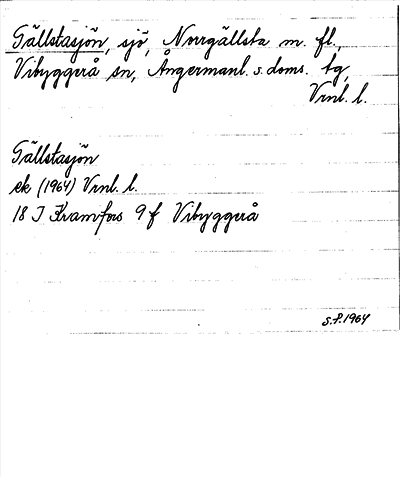 Gällstasjön, sjö, Norrgällsta m. fl.,
Vibyggerå sn, Ångermanl. s. doms. tg,
Vrnl. l.
Gällstasjön
ek (1964) Vrnl. l.
18 I Kramfors 9 f Vibyggerå
S.F. 1964